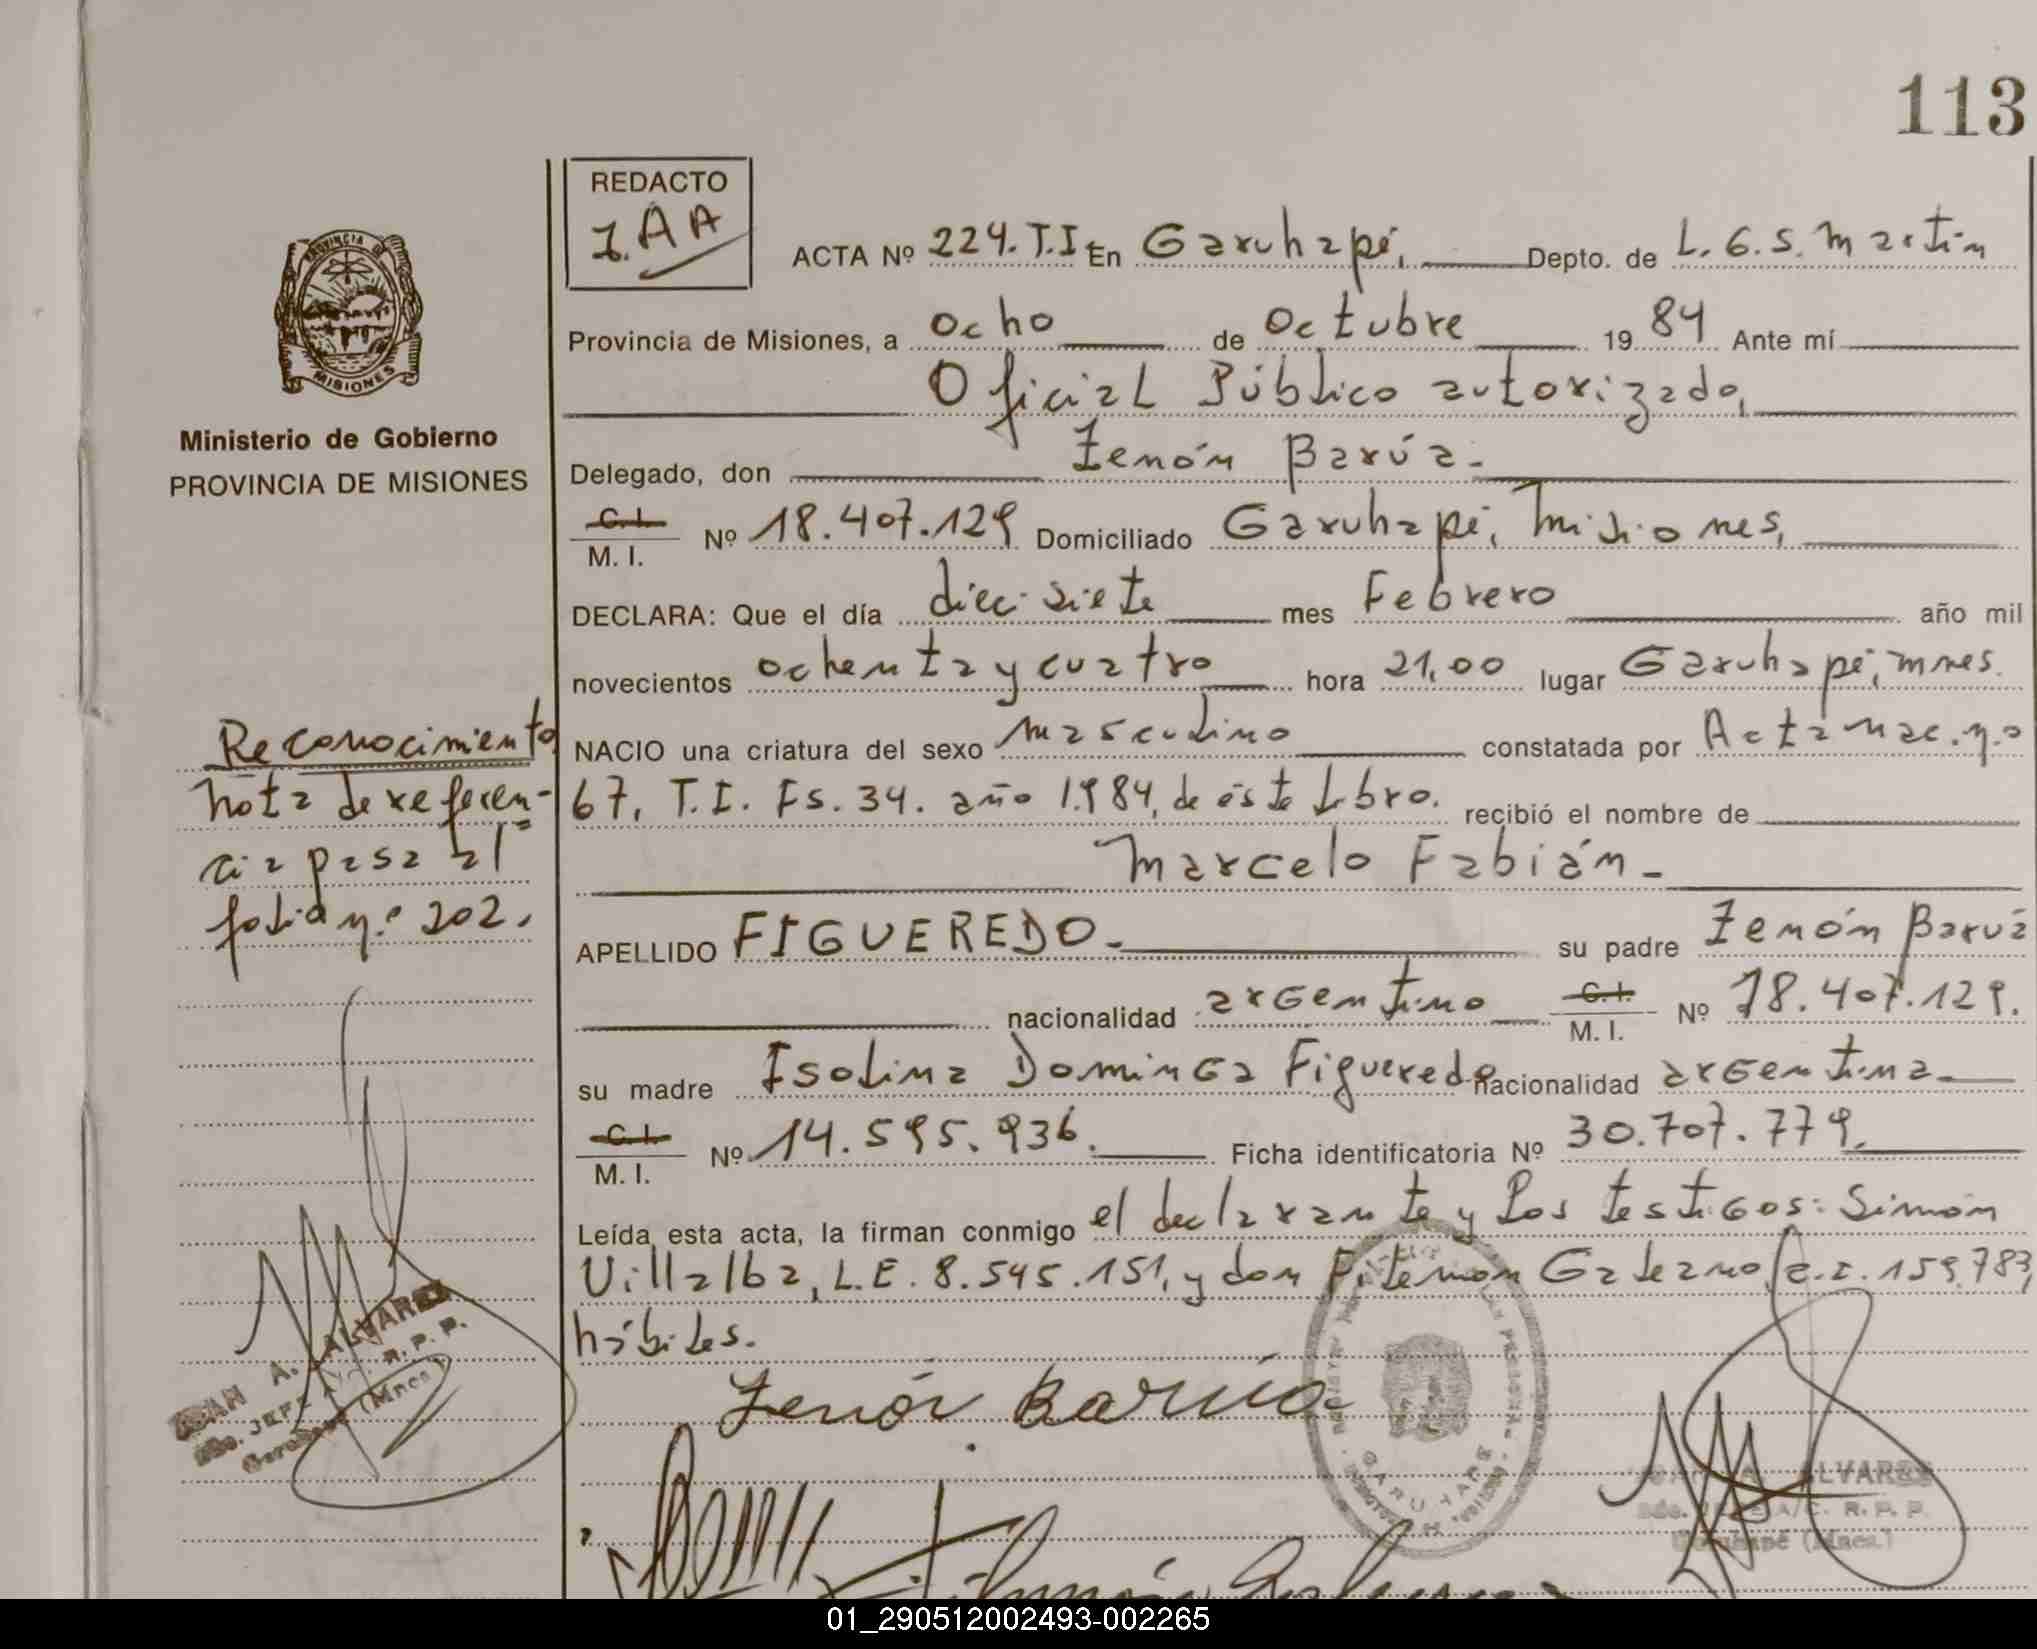 113
REDACTO
J.AA
ACTA Nº 224. T.I En Garuhapé, Depto. de L. G. S. Martin
Provincia de Misiones, a ocho de Octubre 1984 Ante mí
Oficial Público autorizado,
Delegado, don Zenón Barúa.-
C. I.
M. I. Nº 18.407.129 Domiciliado Garuhapé, Misiones,
DECLARA: Que el día diecisiete mes Febrero año mil
novecientos ochenta y cuatro hora 21,00 lugar Garuhapé, Mnes.
NACIO una criatura del sexo masculino constatada por Acta nac. n.º
67, T.I. Fs. 34. año 1.984, de éste Libro. recibió el nombre de
Marcelo Fabián -
APELLIDO FIGUEREDO.- su padre Zenón Barúa
nacionalidad argentino C. I. M. I. Nº 18.407.129.
su madre Isolina Dominga Figueredo nacionalidad argentina-
C. I.
M. I. Nº 14.595.936. Ficha identificatoria Nº 30.707.779.
Leída esta acta, la firman conmigo el declarante y los testigos: Simón
Villalba, L.E. 8.545.151, y don Filemon Galeano, C.I. 159.783,
hábiles.
Zenón Barúa
PROVINCIA DE
MISIONES
Ministerio de Gobierno
PROVINCIA DE MISIONES
Reconocimiento
nota de referen-
cia pasa al
folio n.º 202.
JUAN A. ALVAREZ
A/C. R. P. P.
Garuhapé (Mnes)
GARUHAPE
ALVAREZ
A/C. R. P. P.
Garuhapé (Mnes.)
01_290512002493-002265